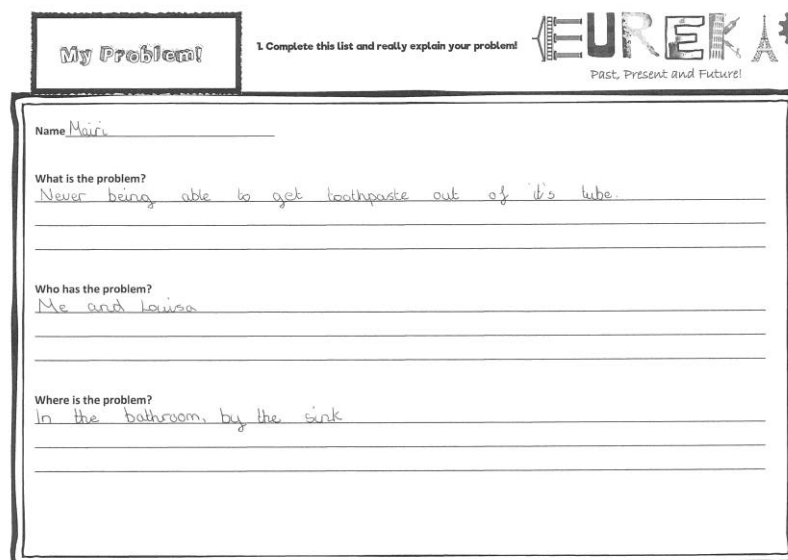 My Problem!
1. Complete this list and really explain your problem!
EUREKA
Past, Present and Future!
Name Mairi
What is the problem?
Never being able to get toothpaste out of it's tube.
Who has the problem?
Me and Louisa
Where is the problem?
In the bathroom, by the sink